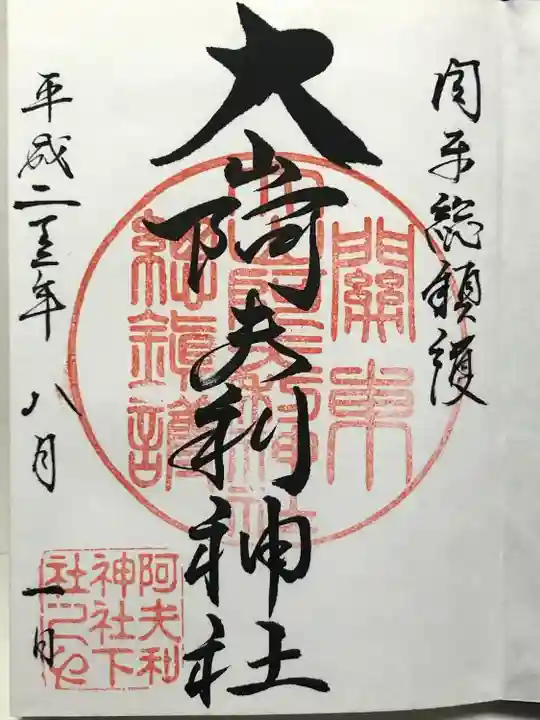 関東総鎮護
大山阿夫利神社
平成二十五年 八月 一日
關東
総鎮護
阿夫利
神社下
社之印